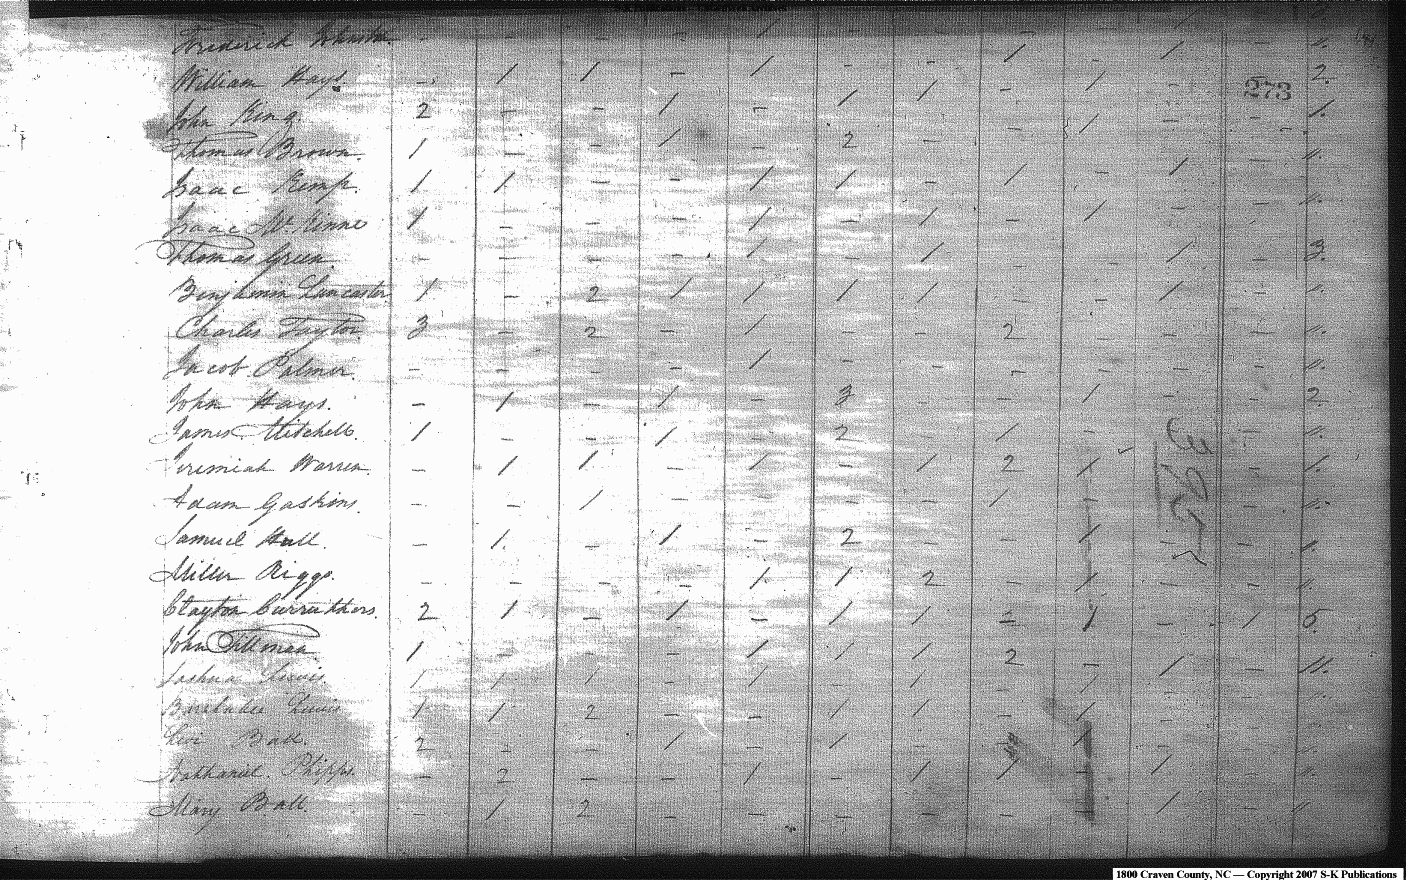 Frederick Johnston - - - - / - - / - / - ".
William Hays. - / / - / - - / - / - 2.
273
John King 2 - - / - / / - / - - 1.
Thomas Brown 1 - - / - 2 - - / - - ".
Isaac Kemp. 1 / - - / / - / - / - ".
Isaac McKinne 1 - - - / - / - / - - ".
Thomas Green - - - - / - / - - / - 3.
Benjamin Lancaster 1 - 2 / / / / - - / - ".
Charles Taylor 3 - 2 - / - - 2 - - - ".
Jacob Palmer - - - - / - - - - - - ".
John Hays. - / - / - 3 - - / - - 2.
James Mitchell. 1 - - / - 2 - / - ".
Jeremiah Warren. - / / - / - / 2 / - 1.
Adam Gaskins. - - / - - - - / - - ".
Samuel Hall. - / - / - 2 - - / - - ".
Miller Riggs. - - - - / / 2 - / - - ".
Clayton Carruthers. 2 / - / - / / 2 / - / 5.
John Tillman 1 - - - / / / 2 - / - 11.
Joshua Lewis. 1 / / / / / / - / - - ".
Barnabee Lewis 1 / 2 - - / / - / - - ".
Levi Ball. 2 - - / - / - / - - ".
Nathaniel Phipps. - 2 - - / - / / - / - ".
Mary Ball - / 2 - - - - - - / - "
1800 Craven County, NC — Copyright 2007 S-K Publications